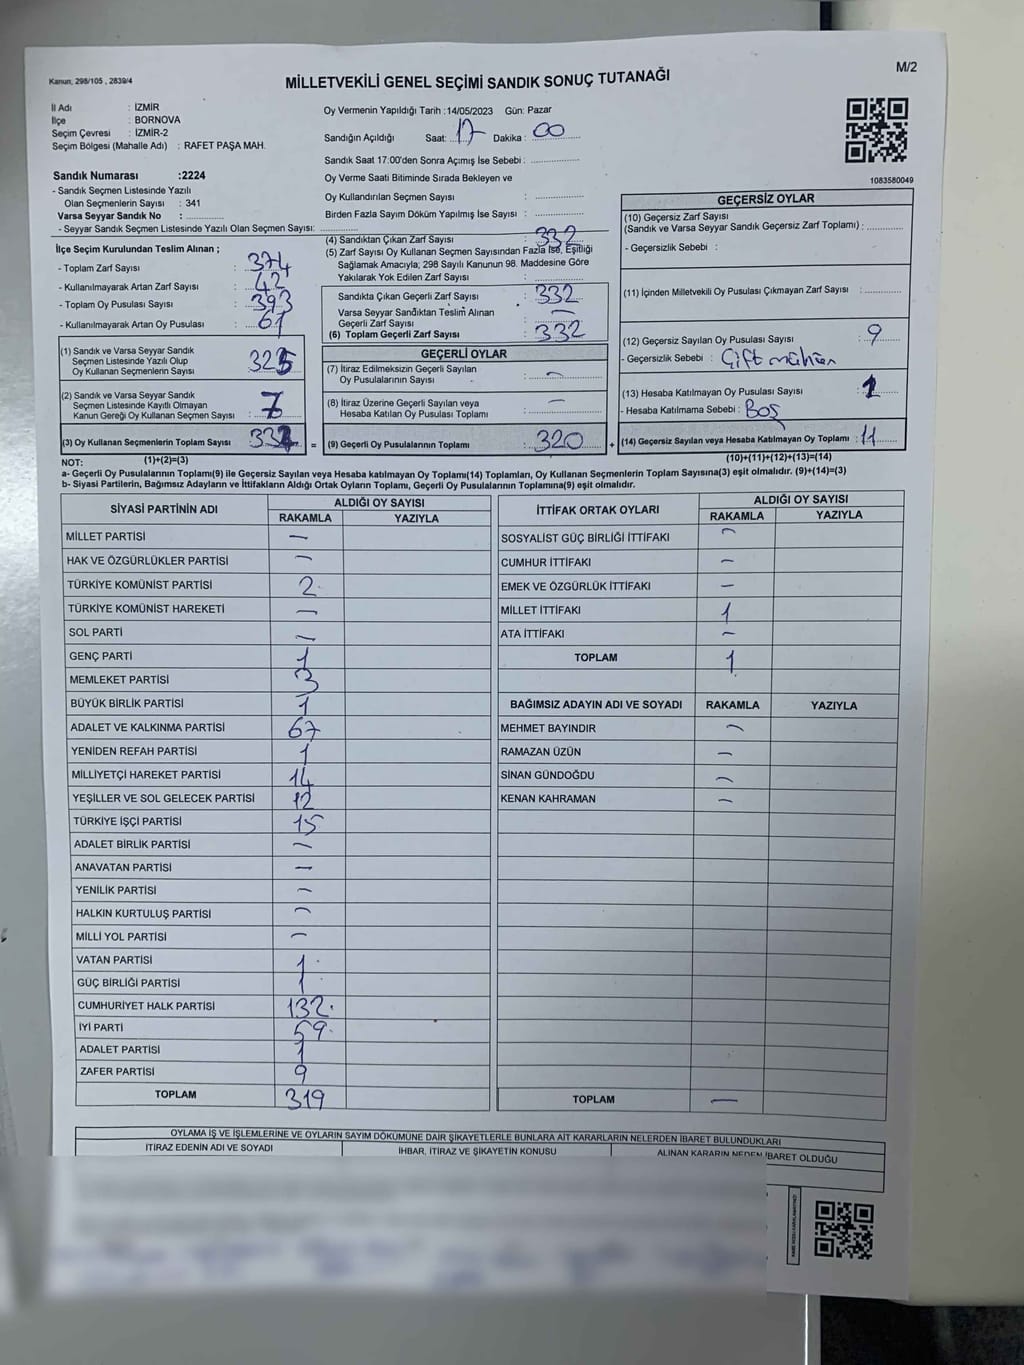 Kanun, 298/105 , 2839/4
MİLLETVEKİLİ GENEL SEÇİMİ SANDIK SONUÇ TUTANAĞI
M/2
İl Adı : İZMİR
İlçe : BORNOVA
Seçim Çevresi : İZMİR-2
Seçim Bölgesi (Mahalle Adı) : RAFET PAŞA MAH.
Oy Vermenin Yapıldığı Tarih :14/05/2023 Gün: Pazar
Sandığın Açıldığı Saat: 17 Dakika : 00
Sandık Saat 17:00'den Sonra Açımış İse Sebebi :
Oy Verme Saati Bitiminde Sırada Bekleyen ve
Oy Kullandırılan Seçmen Sayısı :
Birden Fazla Sayım Döküm Yapılmış İse Sayısı :
1083580049
Sandık Numarası :2224
- Sandık Seçmen Listesinde Yazılı
Olan Seçmenlerin Sayısı : 341
Varsa Seyyar Sandık No :
- Seyyar Sandık Seçmen Listesinde Yazılı Olan Seçmen Sayısı:
İlçe Seçim Kurulundan Teslim Alınan ;
- Toplam Zarf Sayısı : 374
- Kullanılmayarak Artan Zarf Sayısı : 42
- Toplam Oy Pusulası Sayısı : 393
- Kullanılmayarak Artan Oy Pusulası : 61
(1) Sandık ve Varsa Seyyar Sandık
Seçmen Listesinde Yazılı Olup
Oy Kullanan Seçmenlerin Sayısı : 325
(2) Sandık ve Varsa Seyyar Sandık
Seçmen Listesinde Kayıtlı Olmayan
Kanun Gereği Oy Kullanan Seçmen Sayısı : 7
(3) Oy Kullanan Seçmenlerin Toplam Sayısı : 332
(4) Sandıktan Çıkan Zarf Sayısı : 332
(5) Zarf Sayısı Oy Kullanan Seçmen Sayısından Fazla İse, Eşitliği
Sağlamak Amacıyla; 298 Sayılı Kanunun 98. Maddesine Göre
Yakılarak Yok Edilen Zarf Sayısı :
Sandıkta Çıkan Geçerli Zarf Sayısı : 332
Varsa Seyyar Sandıktan Teslim Alınan
Geçerli Zarf Sayısı : —
(6) Toplam Geçerli Zarf Sayısı : 332
GEÇERLİ OYLAR
(7) İtiraz Edilmeksizin Geçerli Sayılan
Oy Pusulalarının Sayısı : —
(8) İtiraz Üzerine Geçerli Sayılan veya
Hesaba Katılan Oy Pusulası Toplamı : —
= (9) Geçerli Oy Pusulalarının Toplamı : 320 +
GEÇERSİZ OYLAR
(10) Geçersiz Zarf Sayısı
(Sandık ve Varsa Seyyar Sandık Geçersiz Zarf Toplamı) :
- Geçersizlik Sebebi :
(11) İçinden Milletvekili Oy Pusulası Çıkmayan Zarf Sayısı :
(12) Geçersiz Sayılan Oy Pusulası Sayısı : 9
- Geçersizlik Sebebi : Çift mühür
(13) Hesaba Katılmayan Oy Pusulası Sayısı :
- Hesaba Katılmama Sebebi : BOŞ
(14) Geçersiz Sayılan veya Hesaba Katılmayan Oy Toplamı : 11
NOT: (1)+(2)=(3)
(10)+(11)+(12)+(13)=(14)
a- Geçerli Oy Pusulalarının Toplamı(9) ile Geçersiz Sayılan veya Hesaba katılmayan Oy Toplamı(14) Toplamları, Oy Kullanan Seçmenlerin Toplam Sayısına(3) eşit olmalıdır. (9)+(14)=(3)
b- Siyasi Partilerin, Bağımsız Adayların ve İttifakların Aldığı Ortak Oyların Toplamı, Geçerli Oy Pusulalarının Toplamına(9) eşit olmalıdır.
SİYASİ PARTİNİN ADI ALDIĞI OY SAYISI
RAKAMLA YAZIYLA
MİLLET PARTİSİ —
HAK VE ÖZGÜRLÜKLER PARTİSİ —
TÜRKİYE KOMÜNİST PARTİSİ 2
TÜRKİYE KOMÜNİST HAREKETİ —
SOL PARTİ —
GENÇ PARTİ 1
MEMLEKET PARTİSİ 3
BÜYÜK BİRLİK PARTİSİ 1
ADALET VE KALKINMA PARTİSİ 67
YENİDEN REFAH PARTİSİ 1
MİLLİYETÇİ HAREKET PARTİSİ 14
YEŞİLLER VE SOL GELECEK PARTİSİ 12
TÜRKİYE İŞÇİ PARTİSİ 15
ADALET BİRLİK PARTİSİ —
ANAVATAN PARTİSİ —
YENİLİK PARTİSİ —
HALKIN KURTULUŞ PARTİSİ —
MİLLİ YOL PARTİSİ —
VATAN PARTİSİ 1
GÜÇ BİRLİĞİ PARTİSİ 1
CUMHURİYET HALK PARTİSİ 132
İYİ PARTİ 59
ADALET PARTİSİ 1
ZAFER PARTİSİ 9
TOPLAM 319
İTTİFAK ORTAK OYLARI ALDIĞI OY SAYISI
RAKAMLA YAZIYLA
SOSYALİST GÜÇ BİRLİĞİ İTTİFAKI —
CUMHUR İTTİFAKI —
EMEK VE ÖZGÜRLÜK İTTİFAKI —
MİLLET İTTİFAKI 1
ATA İTTİFAKI —
TOPLAM 1
BAĞIMSIZ ADAYIN ADI VE SOYADI RAKAMLA YAZIYLA
MEHMET BAYINDIR —
RAMAZAN ÜZÜN —
SİNAN GÜNDOĞDU —
KENAN KAHRAMAN —
TOPLAM —
OYLAMA İŞ VE İŞLEMLERİNE VE OYLARIN SAYIM DÖKÜMÜNE DAİR ŞİKAYETLERLE BUNLARA AİT KARARLARIN NELERDEN İBARET BULUNDUKLARI
İTİRAZ EDENİN ADI VE SOYADI İHBAR, İTİRAZ VE ŞİKAYETİN KONUSU ALINAN KARARIN NEDEN İBARET OLDUĞU